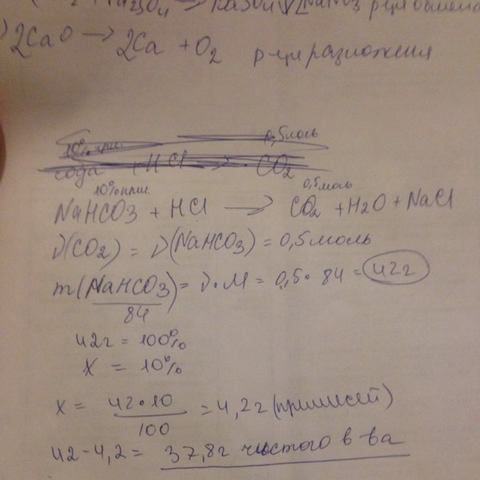 2CaO → 2Ca + O2 р-ция разложения
10% прим. 0,5 моль
сода + HCl → CO2
10% прим. 0,5 моль
NaHCO3 + HCl → CO2 + H2O + NaCl
ν(CO2) = ν(NaHCO3) = 0,5 моль
m(NaHCO3) = ν · M = 0,5 · 84 = 42г
84
42г = 100%
x = 10%
x = 42·10 / 100 = 4,2г (примесей)
42-4,2 = 37,8г чистого в-ва